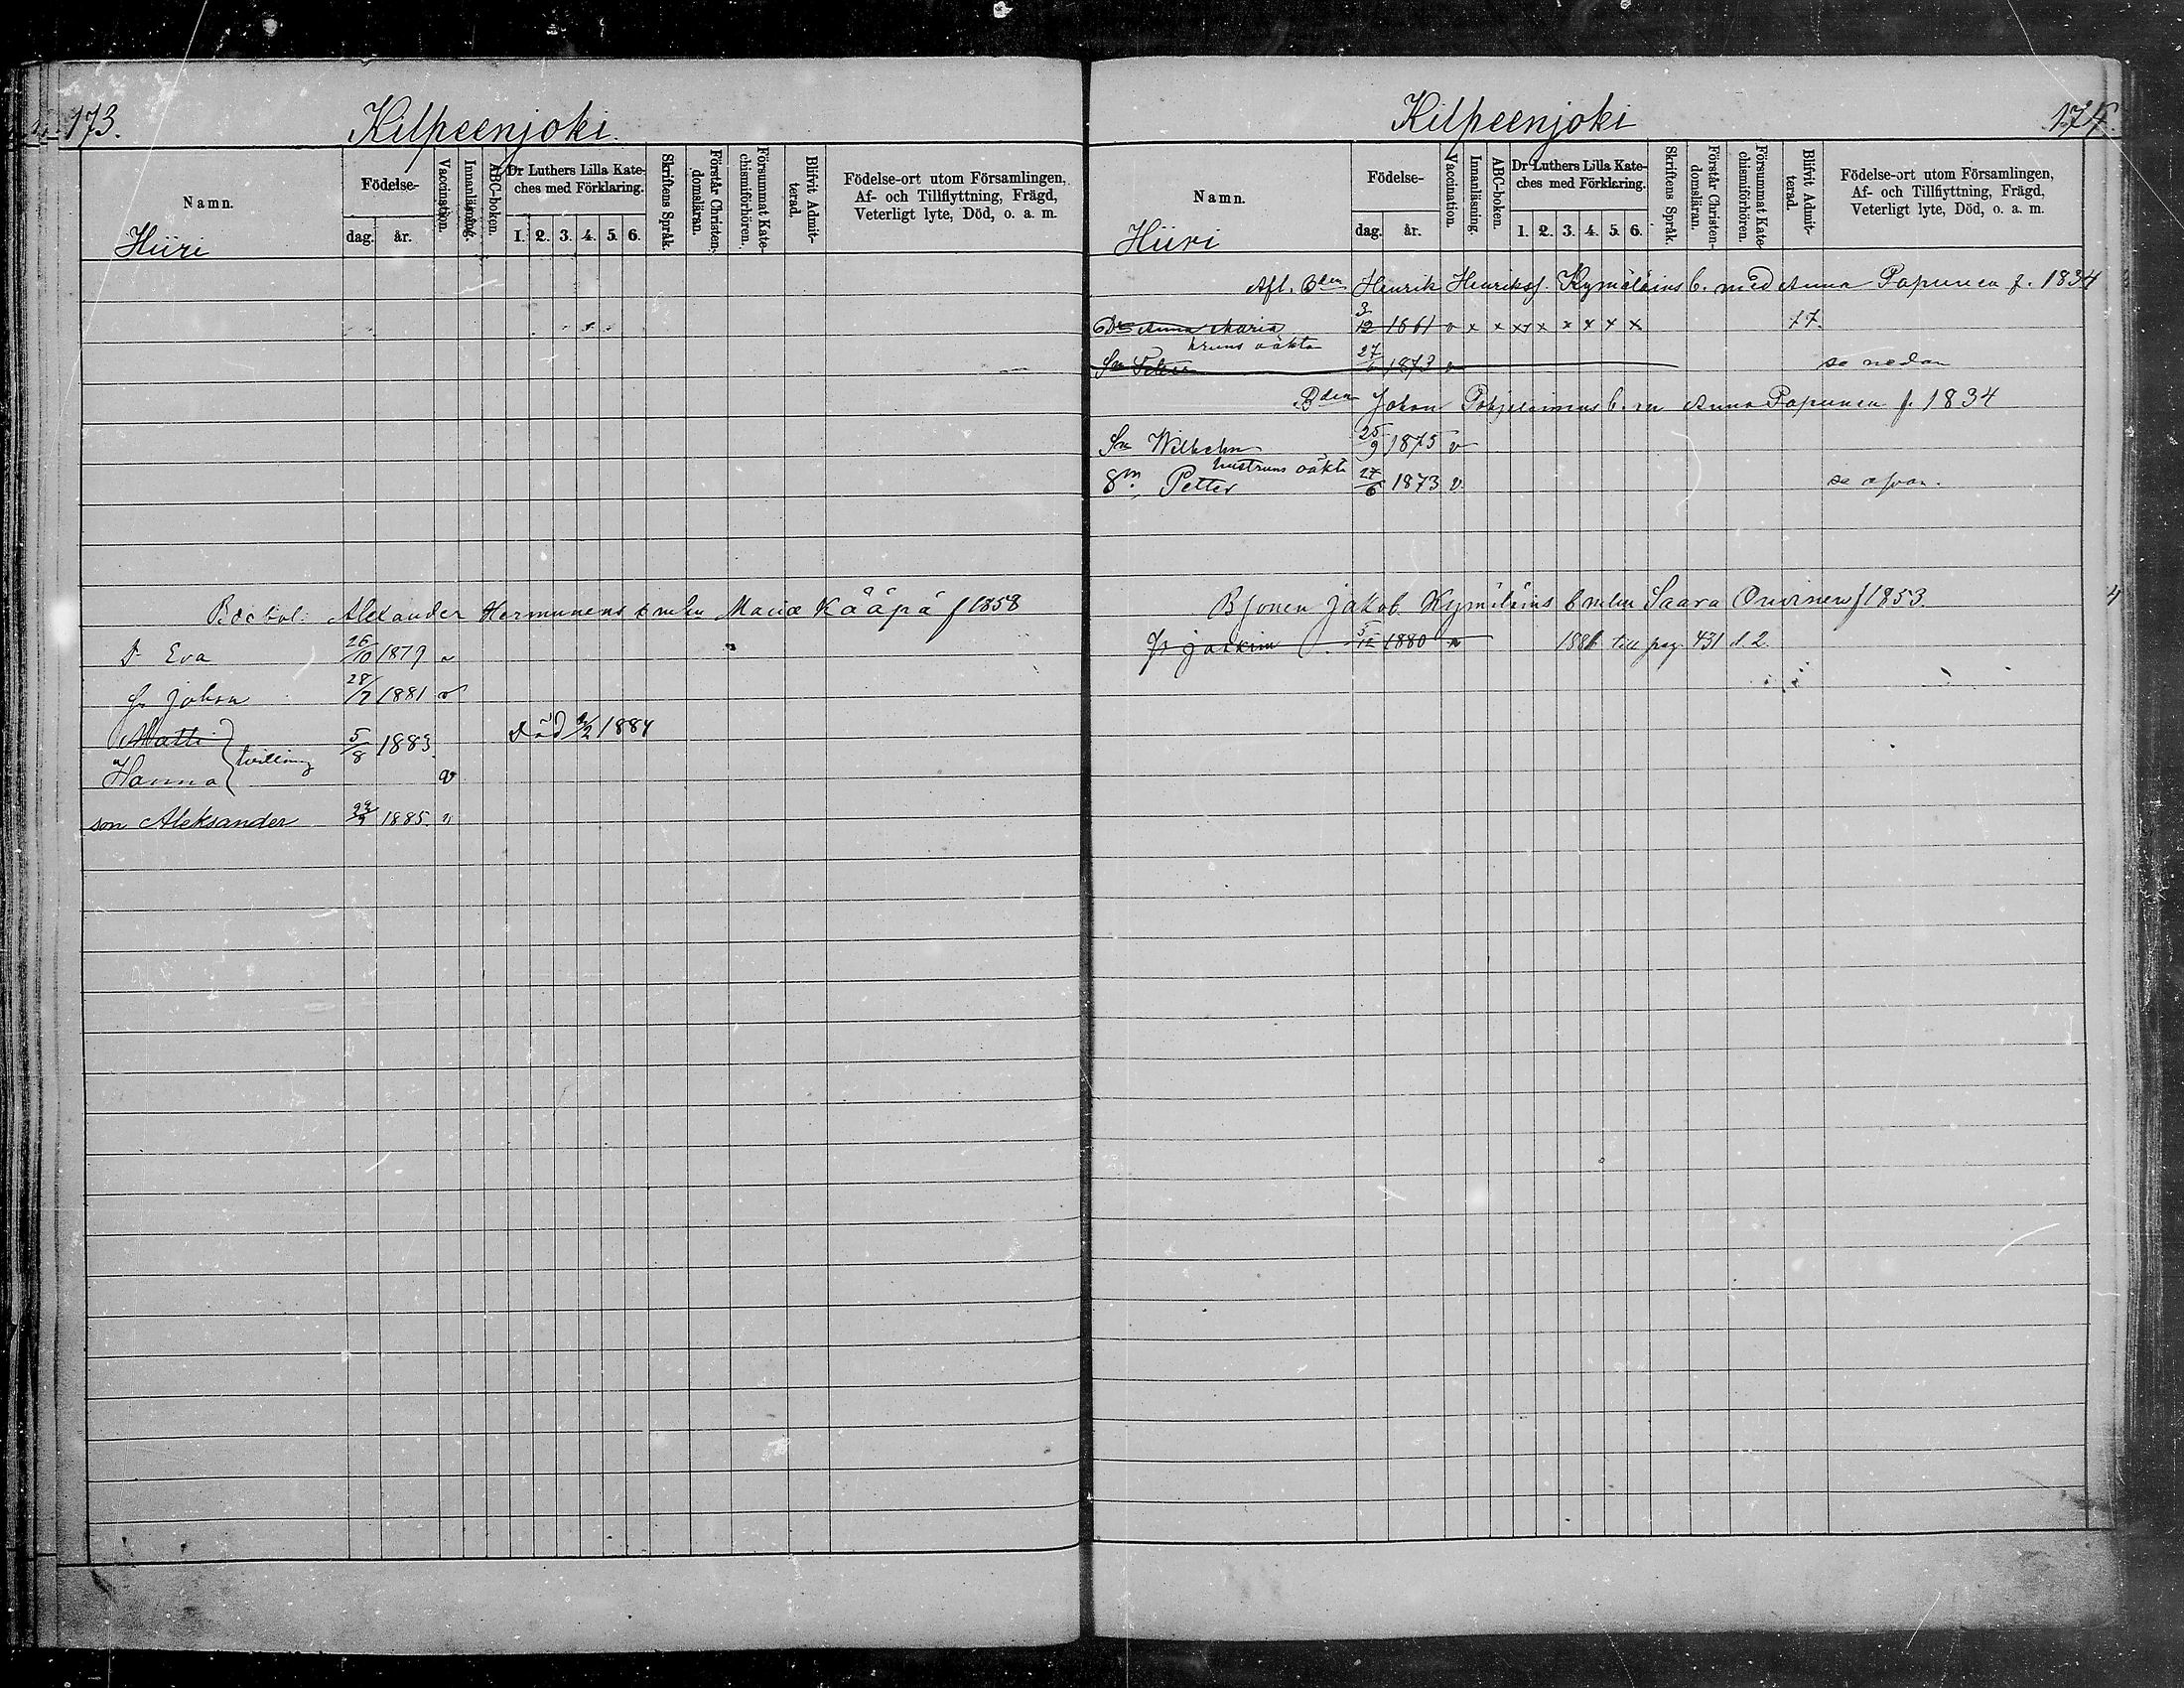 173.
Kilpeenjoki
Namn.
Födelse-
dag.
år.
Vaccination.
Innanläsning.
ABC-boken.
Dr Luthers Lilla Kate-
ches med Förklaring.
1. 2. 3. 4. 5. 6.
Skriftens Språk.
Förstår Christen-
domsläran.
Försummat Kate-
chismiförhören.
Blifvit Admit-
terad.
Födelse-ort utom Församlingen,
Af- och Tillflyttning, Frägd,
Veterligt lyte, Död, o. a. m.
Hiiri
Alexander Hermunens Maria Kääpä f 1858
D Eva 26/10 1879 v
Sn Johan 28/7 1881 v
Matti 5/8 1883 Död 1884
tvilling
Hanna v
son Aleksander 1885. v
Kilpeenjoki
174.
Namn.
Födelse-
dag.
år.
Vaccination.
Innanläsning.
ABC-boken.
Dr Luthers Lilla Kate-
ches med Förklaring.
1. 2. 3. 4. 5. 6.
Skriftens Språk.
Förstår Christen-
domsläran.
Försummat Kate-
chismiförhören.
Blifvit Admit-
terad.
Födelse-ort utom Församlingen,
Af- och Tillflyttning, Frägd,
Veterligt lyte, Död, o. a. m.
Hiiri
Afl. Bden Henrik Henrikss. Kymäläins b. med Anna Papunen f. 1834
Dr Anna Maria 3/12 1861 v x x x x x x x x x 77.
hruns oäkta
Sn Petter 27/6 1873 v se nedan
Bden Johan b. m Anna Papunen f. 1834
Sn Wilhelm 25/9 1875 v
hustruns oäkta
Sn Petter 27/6 1873 v. se ofvan.
Jakob Kymäläins Saara f 1853.
Joakim 5/12 1880 v 1881 till pag. 431 d. 2.